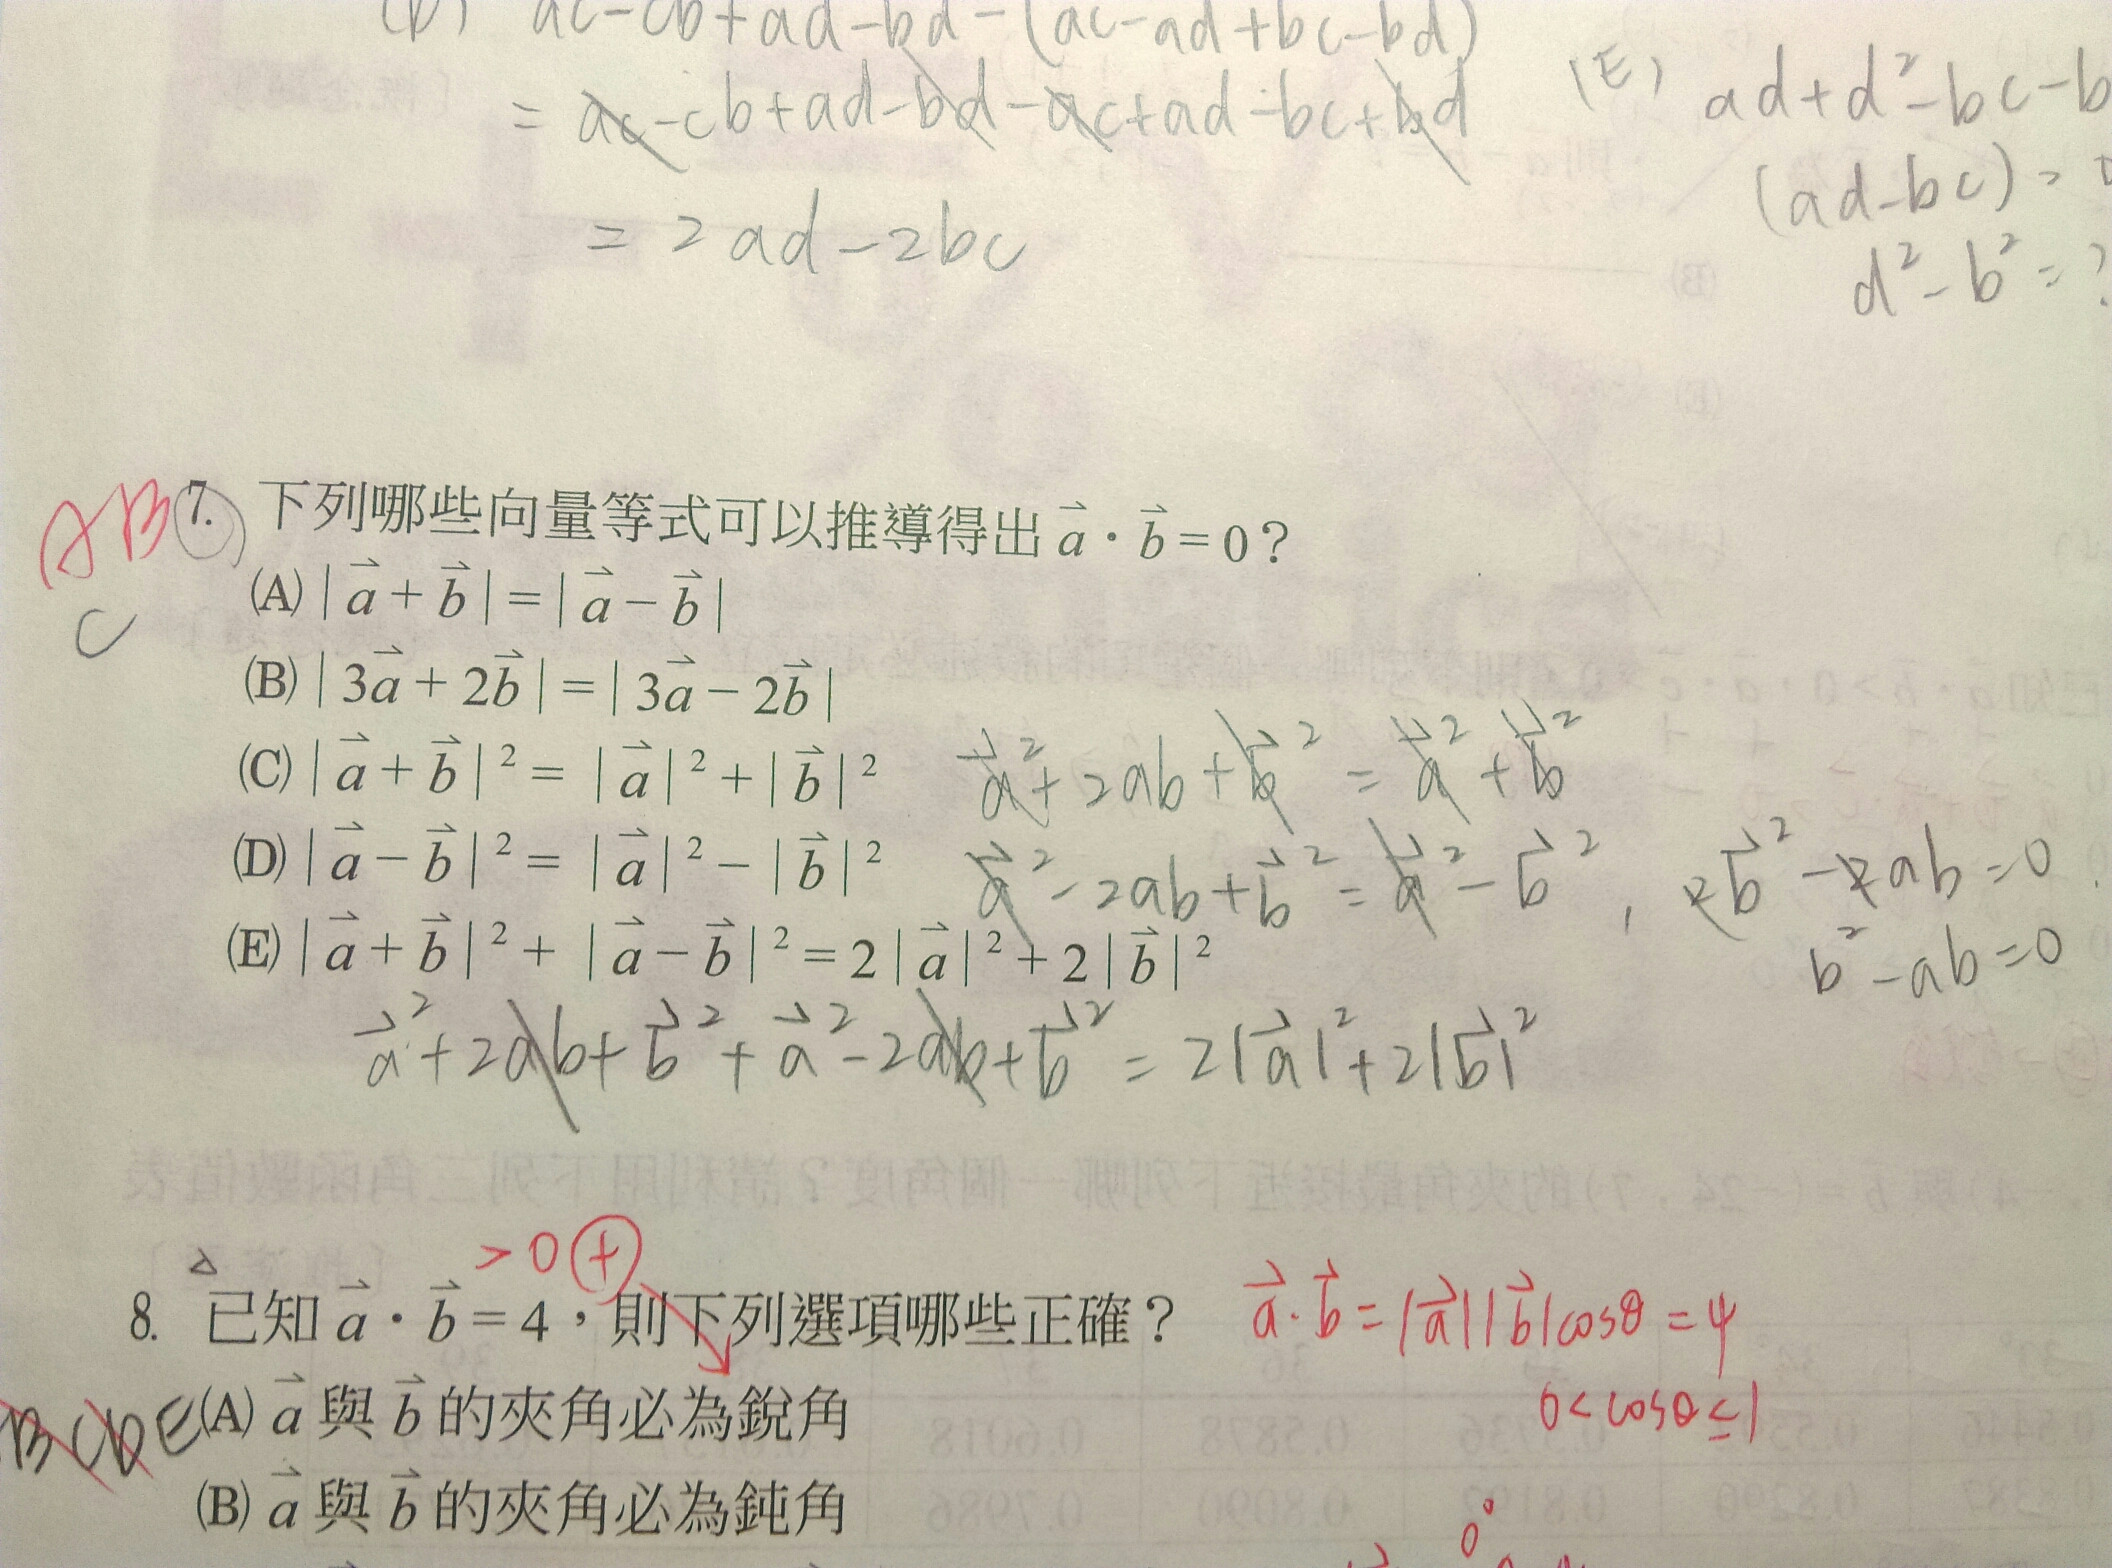 (D) ac-cb+ad-bd-(ac-ad+bc-bd)
= ac-cb+ad-bd-ac+ad-bc+bd
= 2ad-2bc
(E) ad+d²-bc-b
(ad-bc)
d²-b²=?
AB
C
7. 下列哪些向量等式可以推導得出 a⃗·b⃗=0?
(A) |a⃗+b⃗|=|a⃗-b⃗|
(B) |3a⃗+2b⃗|=|3a⃗-2b⃗|
(C) |a⃗+b⃗|²=|a⃗|²+|b⃗|² a⃗²+2ab+b⃗²=a⃗²+b⃗²
(D) |a⃗-b⃗|²=|a⃗|²-|b⃗|² a⃗²-2ab+b⃗²=a⃗²-b⃗², 2b⃗²-2ab=0
b²-ab=0
(E) |a⃗+b⃗|²+|a⃗-b⃗|²=2|a⃗|²+2|b⃗|²
a⃗²+2ab+b⃗²+a⃗²-2ab+b⃗²=2|a⃗|²+2|b⃗|²
>0 +
8. 已知 a⃗·b⃗=4,則下列選項哪些正確? a⃗·b⃗=|a⃗||b⃗|cosθ=4
0<cosθ≤1
BCDE
(A) a⃗ 與 b⃗ 的夾角必為銳角
(B) a⃗ 與 b⃗ 的夾角必為鈍角
0°